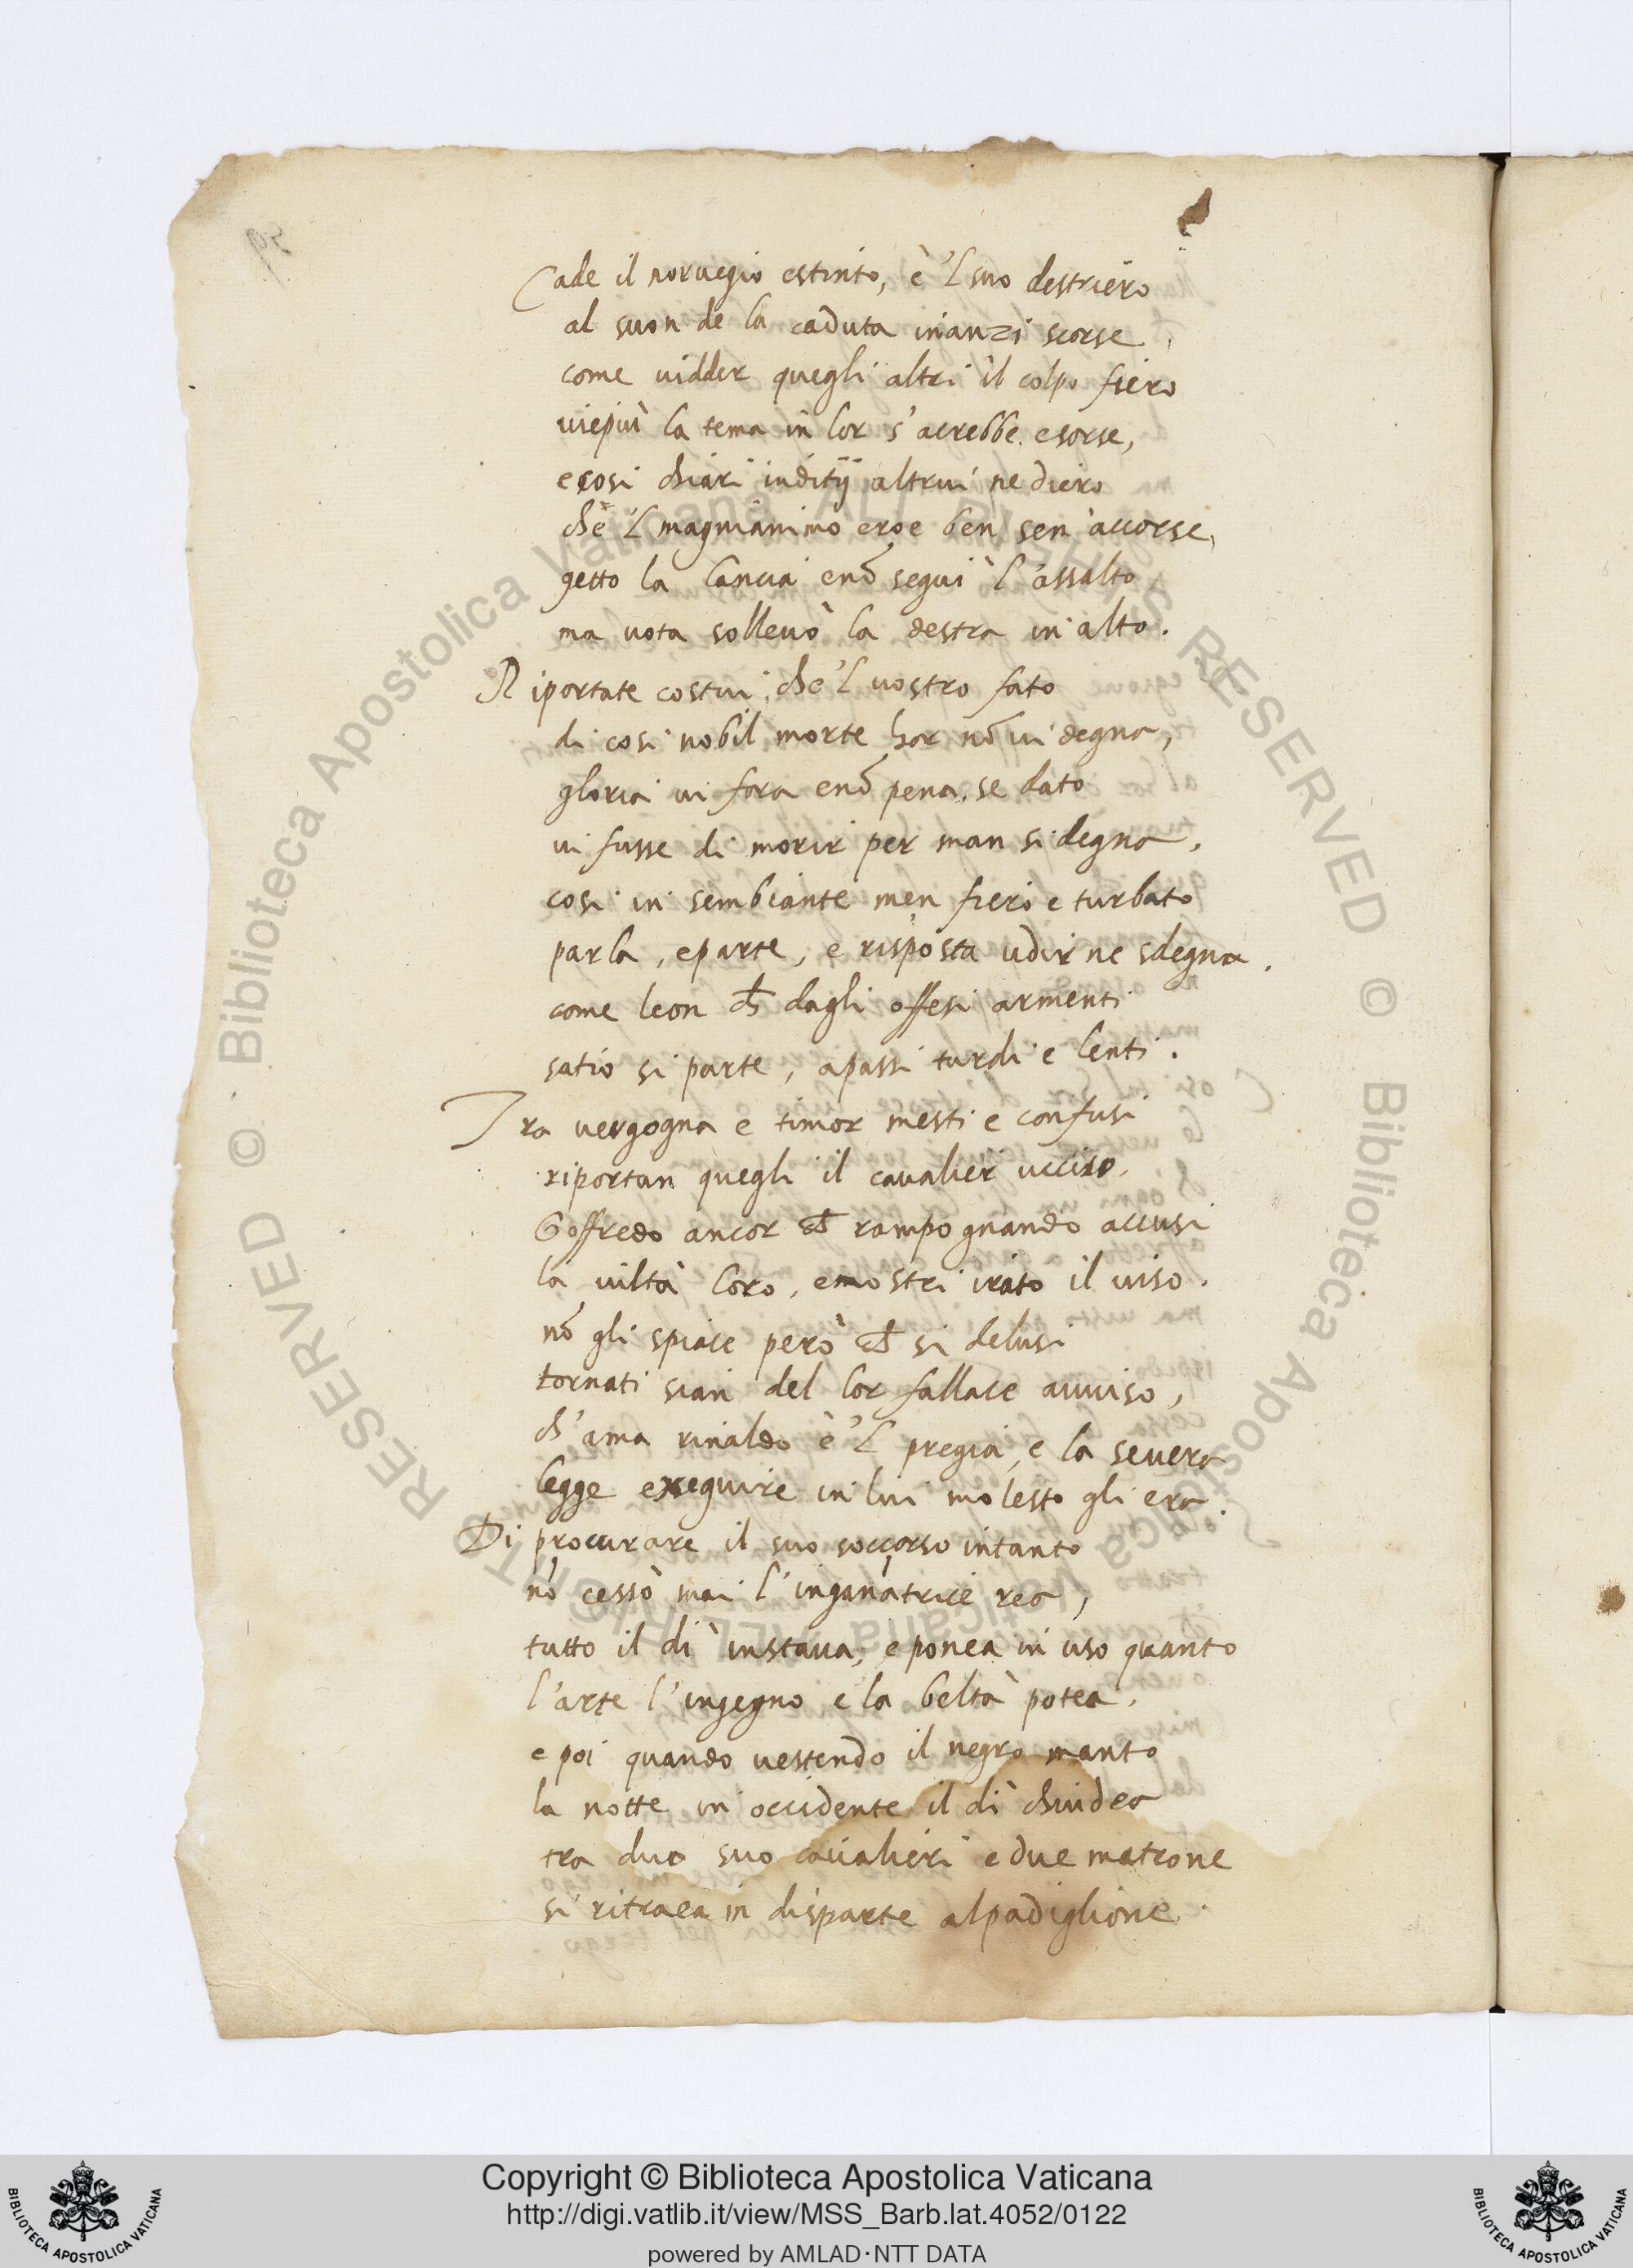 Cade il norvegio estinto, è 'l suo destriero
al suon de la caduta inanzi scorse,
come vidder quegli altri il colpo fiero
viepiù la tema in lor s'acrebbe e sorse,
e cosi chiari inditij altrui ne diero
che 'l magnianimo eroe ben sen' accorse,
getto la lancia e nō segui l'assalto
ma vota sollevò la destra in alto.
Riportate costui, che 'l vostro fato
di cosi nobil morte hor nō vi degna,
gloria vi fora e nō pena, se dato
vi fusse di morir per man si degna,
cosi in sembiante men fiero e turbato
parla, e parte, e risposta udir ne sdegna.
come leon ch dagli offesi armenti
satio si parte, a passi tardi e lenti.
Tra vergogna e timor mesti e confusi
riportan quegli il cavalier ucciso,
Goffredo ancor ch rampognando accusi
la viltà loro, e mostri irato il viso.
nō gli spiace però ch si delusi
tornati sian del lor fallace avviso,
ch'ama rinaldo è 'l pregia, e la severa
legge exeguire in lui molesto gli era.
Di procurare il suo soccorso intanto
nō cessò mai l'inganatrice rea,
tutto il dì instava, e ponea in uso quanto
l'arte l'ingegno e la beltà potea.
e poi quando vestendo il negro manto
la notte in occidente il dì chiudea
tra duo suo cavalieri e due matrone
si ritraea in disparte al padiglione.
RESERVED © Biblioteca Apostolica Vaticana ALL RIGHTS RESERVED © Biblioteca Apostolica Vaticana ALL RIGHTS
Copyright © Biblioteca Apostolica Vaticana
http://digi.vatlib.it/view/MSS_Barb.lat.4052/0122
powered by AMLAD·NTT DATA
BIBLIOTECA APOSTOLICA VATICANA
BIBLIOTECA APOSTOLICA VATICANA